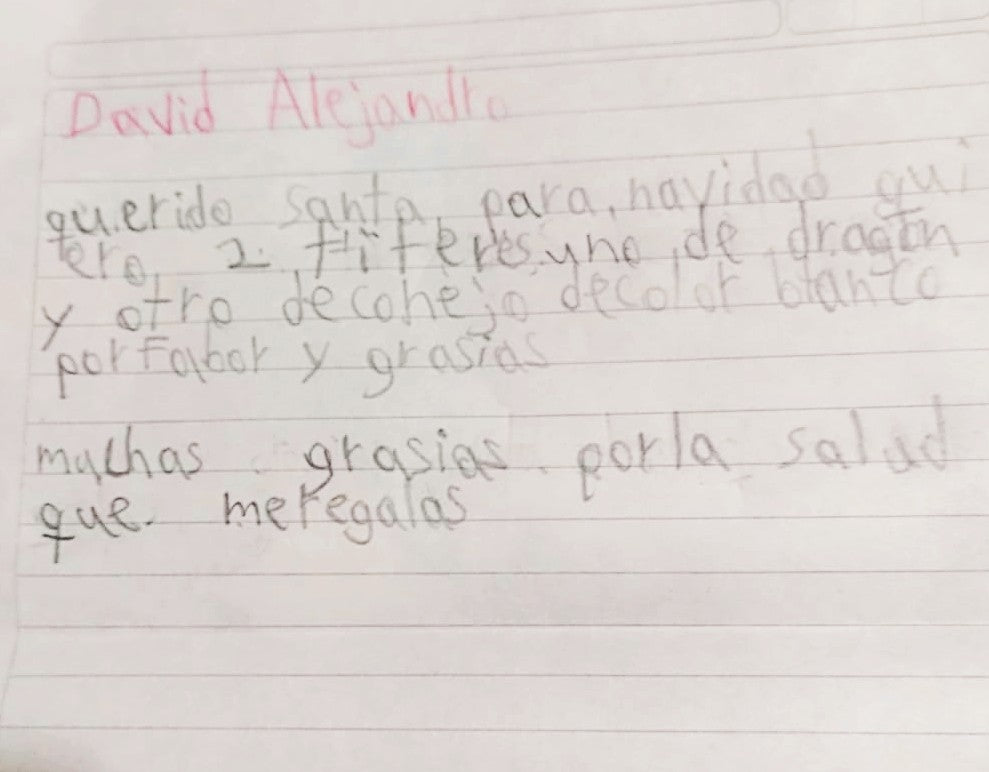 David Alejandro
querido santa para navidad qui
ero 2 titeres uno de dragon
y otro de conejo de color blanco
por fabor y grasias
muchas grasias por la salud
que me regalas